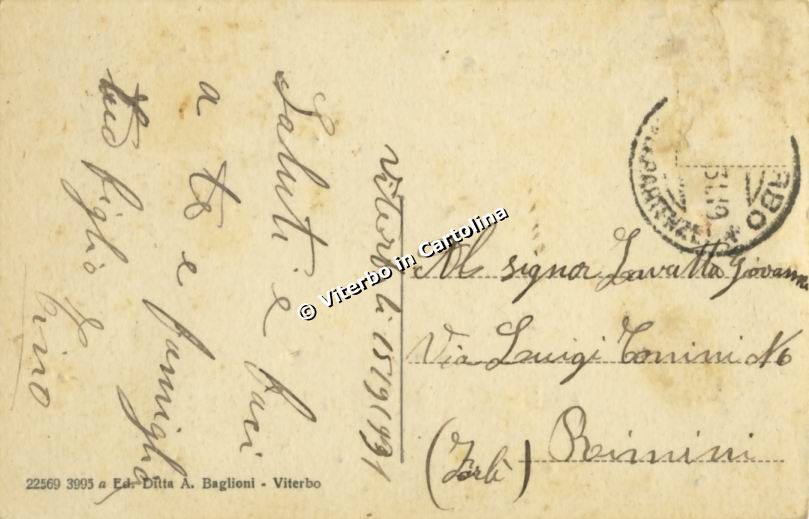 Viterbo li 15/9/1931
Saluti e baci
a te e famiglia
tuo figlio
Al signor Lavatta Giovanni
Via Luigi Tonini No
Rimini
(Forlì)
RBO
PARTENZE
© Viterbo in Cartolina
22569 3995 a Ed. Ditta A. Baglioni - Viterbo